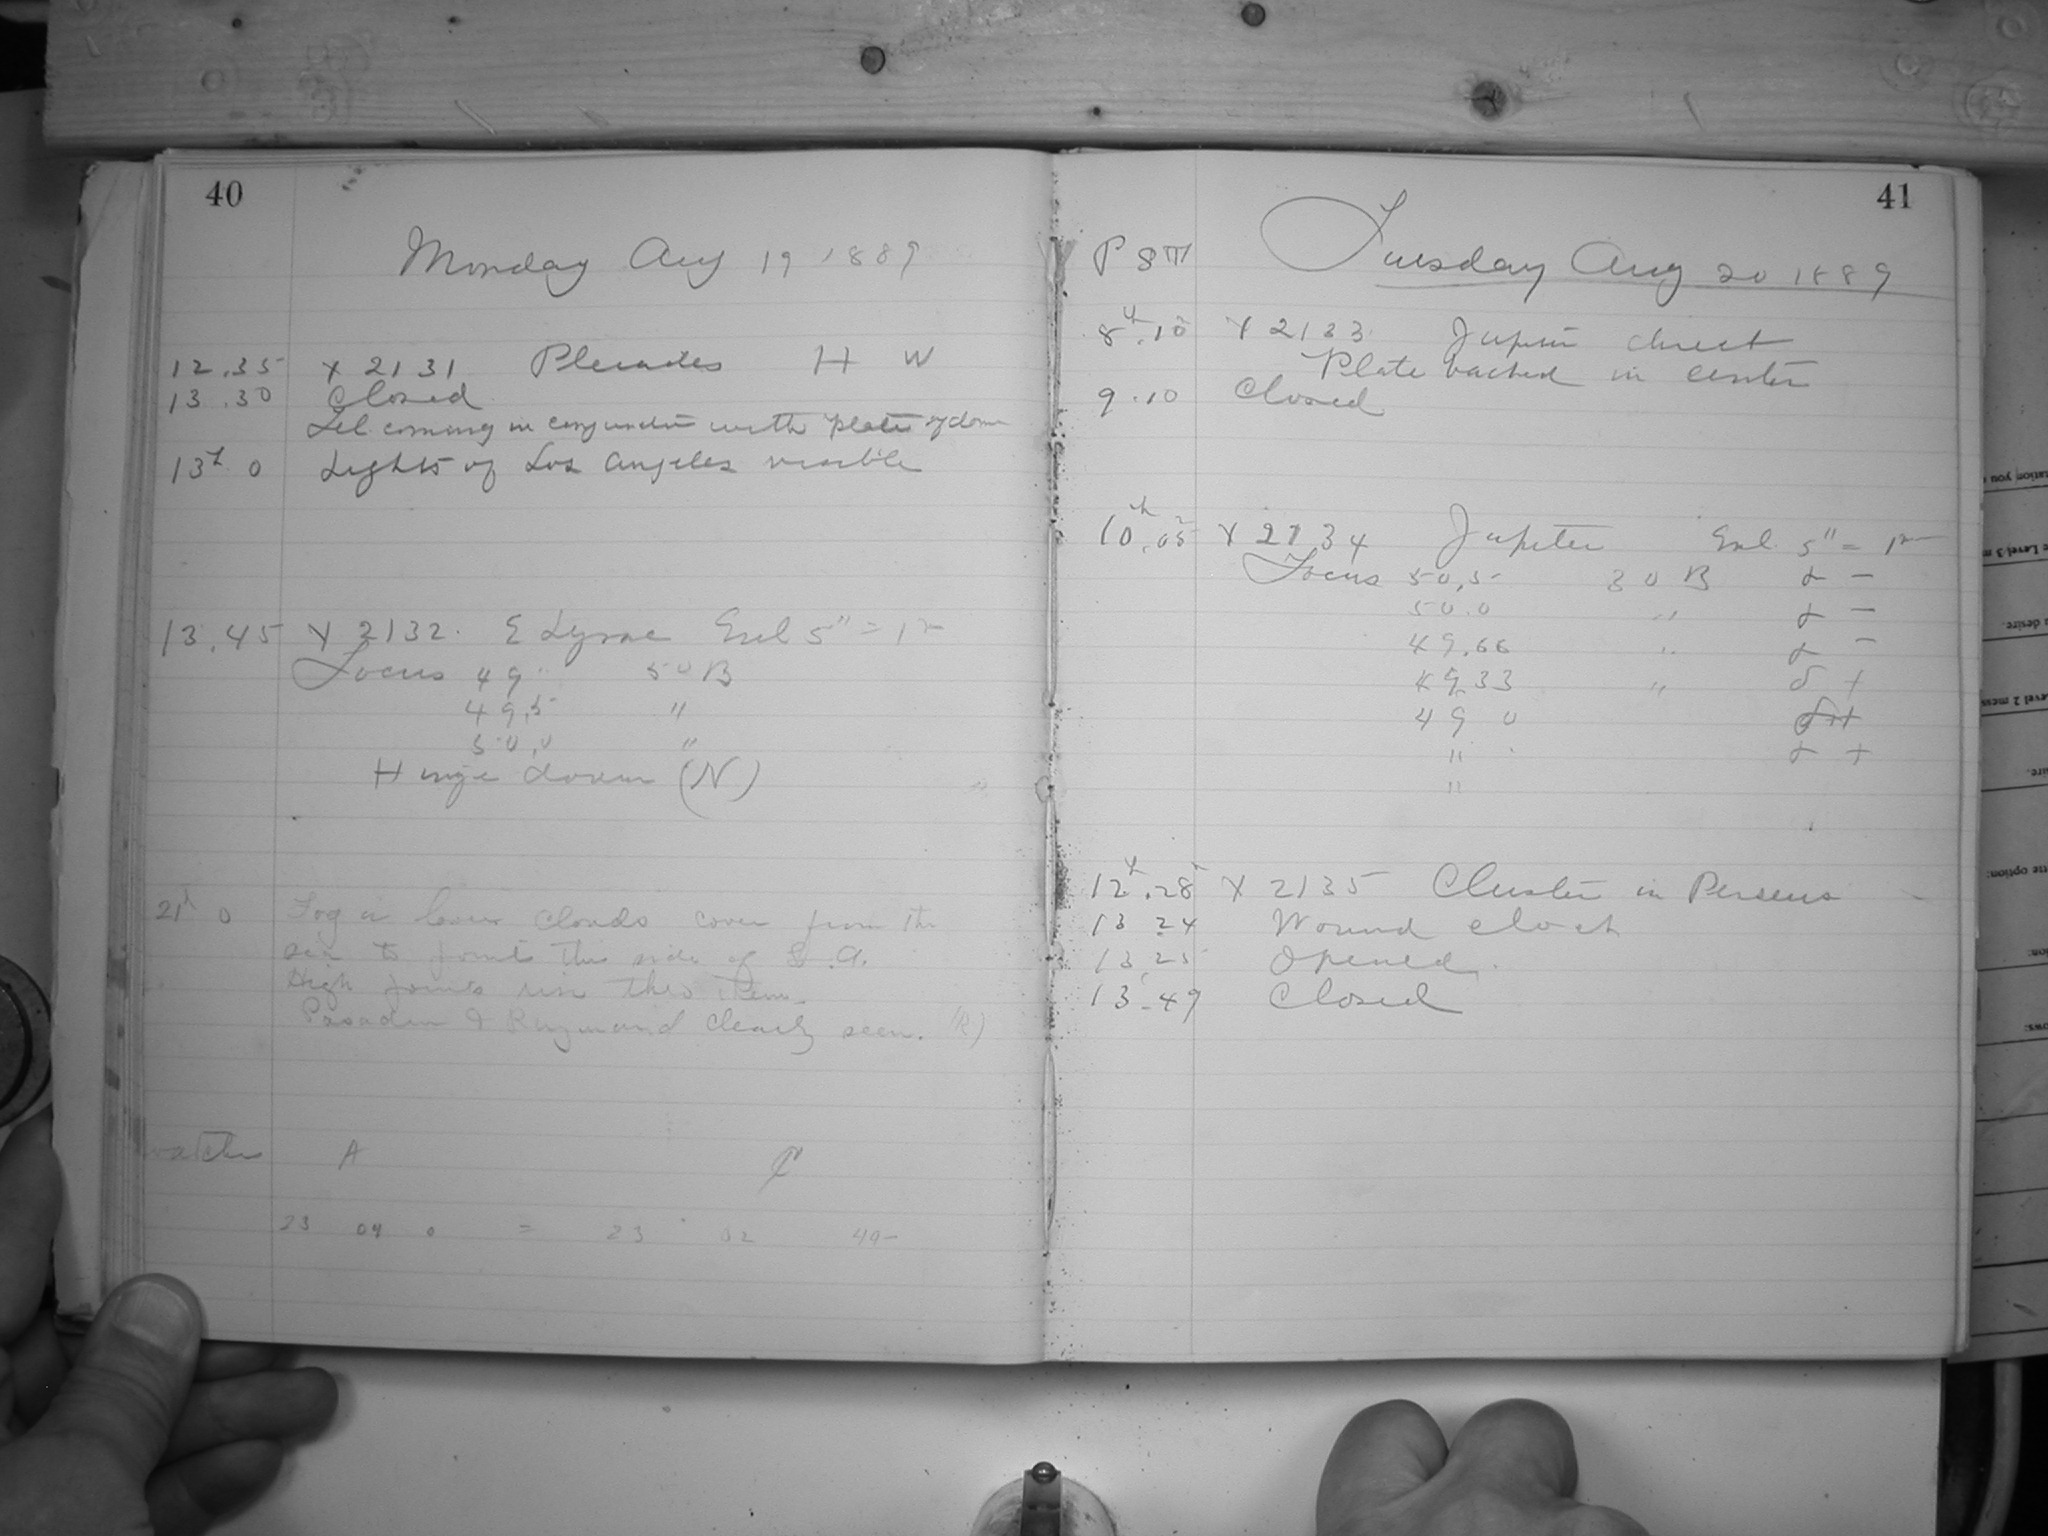 40
Monday Aug 19 1889
12.35 X 2131 Pleiades H W
13.30 Closed
Tel. coming in with plate of dome
13h 0 Lights of Los Angeles visible
13.45 X 2132. E Lyrae Enl 5" = 1
Focus 49 50 B
49.5 "
50.0 "
Hinge down (N)
21h 0 Fog or lower clouds cover from the
sea to points this side of L.A.
High points rise thro them.
Pasadena & Raymond clearly seen. (R)
watches A
23 04 0 = 23 02 49
41
P S T Tuesday Aug 20 1889
8h.10 X 2133 Jupiter direct
Plate backed in center
9.10 Closed
10h.05 X 2134 Jupiter Enl. 5" = 1
Focus 50.5 30 B –
50.0 " –
49.66 " –
49.33 " +
49 0
" +
"
12h.28 X 2135 Cluster in Perseus
13 24 Wound clock
13.25 Opened.
13.49 Closed